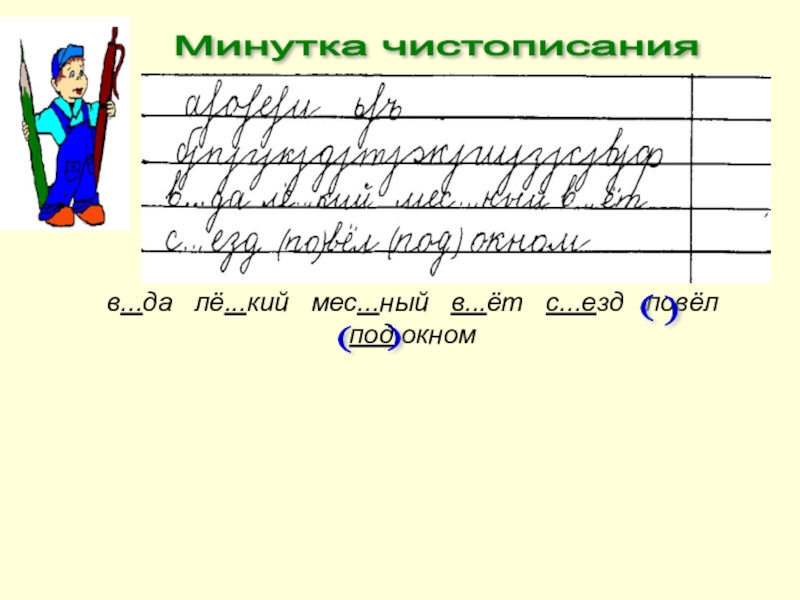 Минутка чистописания
арорери ьръ
брпргркрдртржршрзрсрврф
в...да лё...кий мес...ный в...ёт
с...езд (по)вёл (под) окном
в...да лё...кий мес...ный в...ёт с...езд (по)вёл
(под) окном